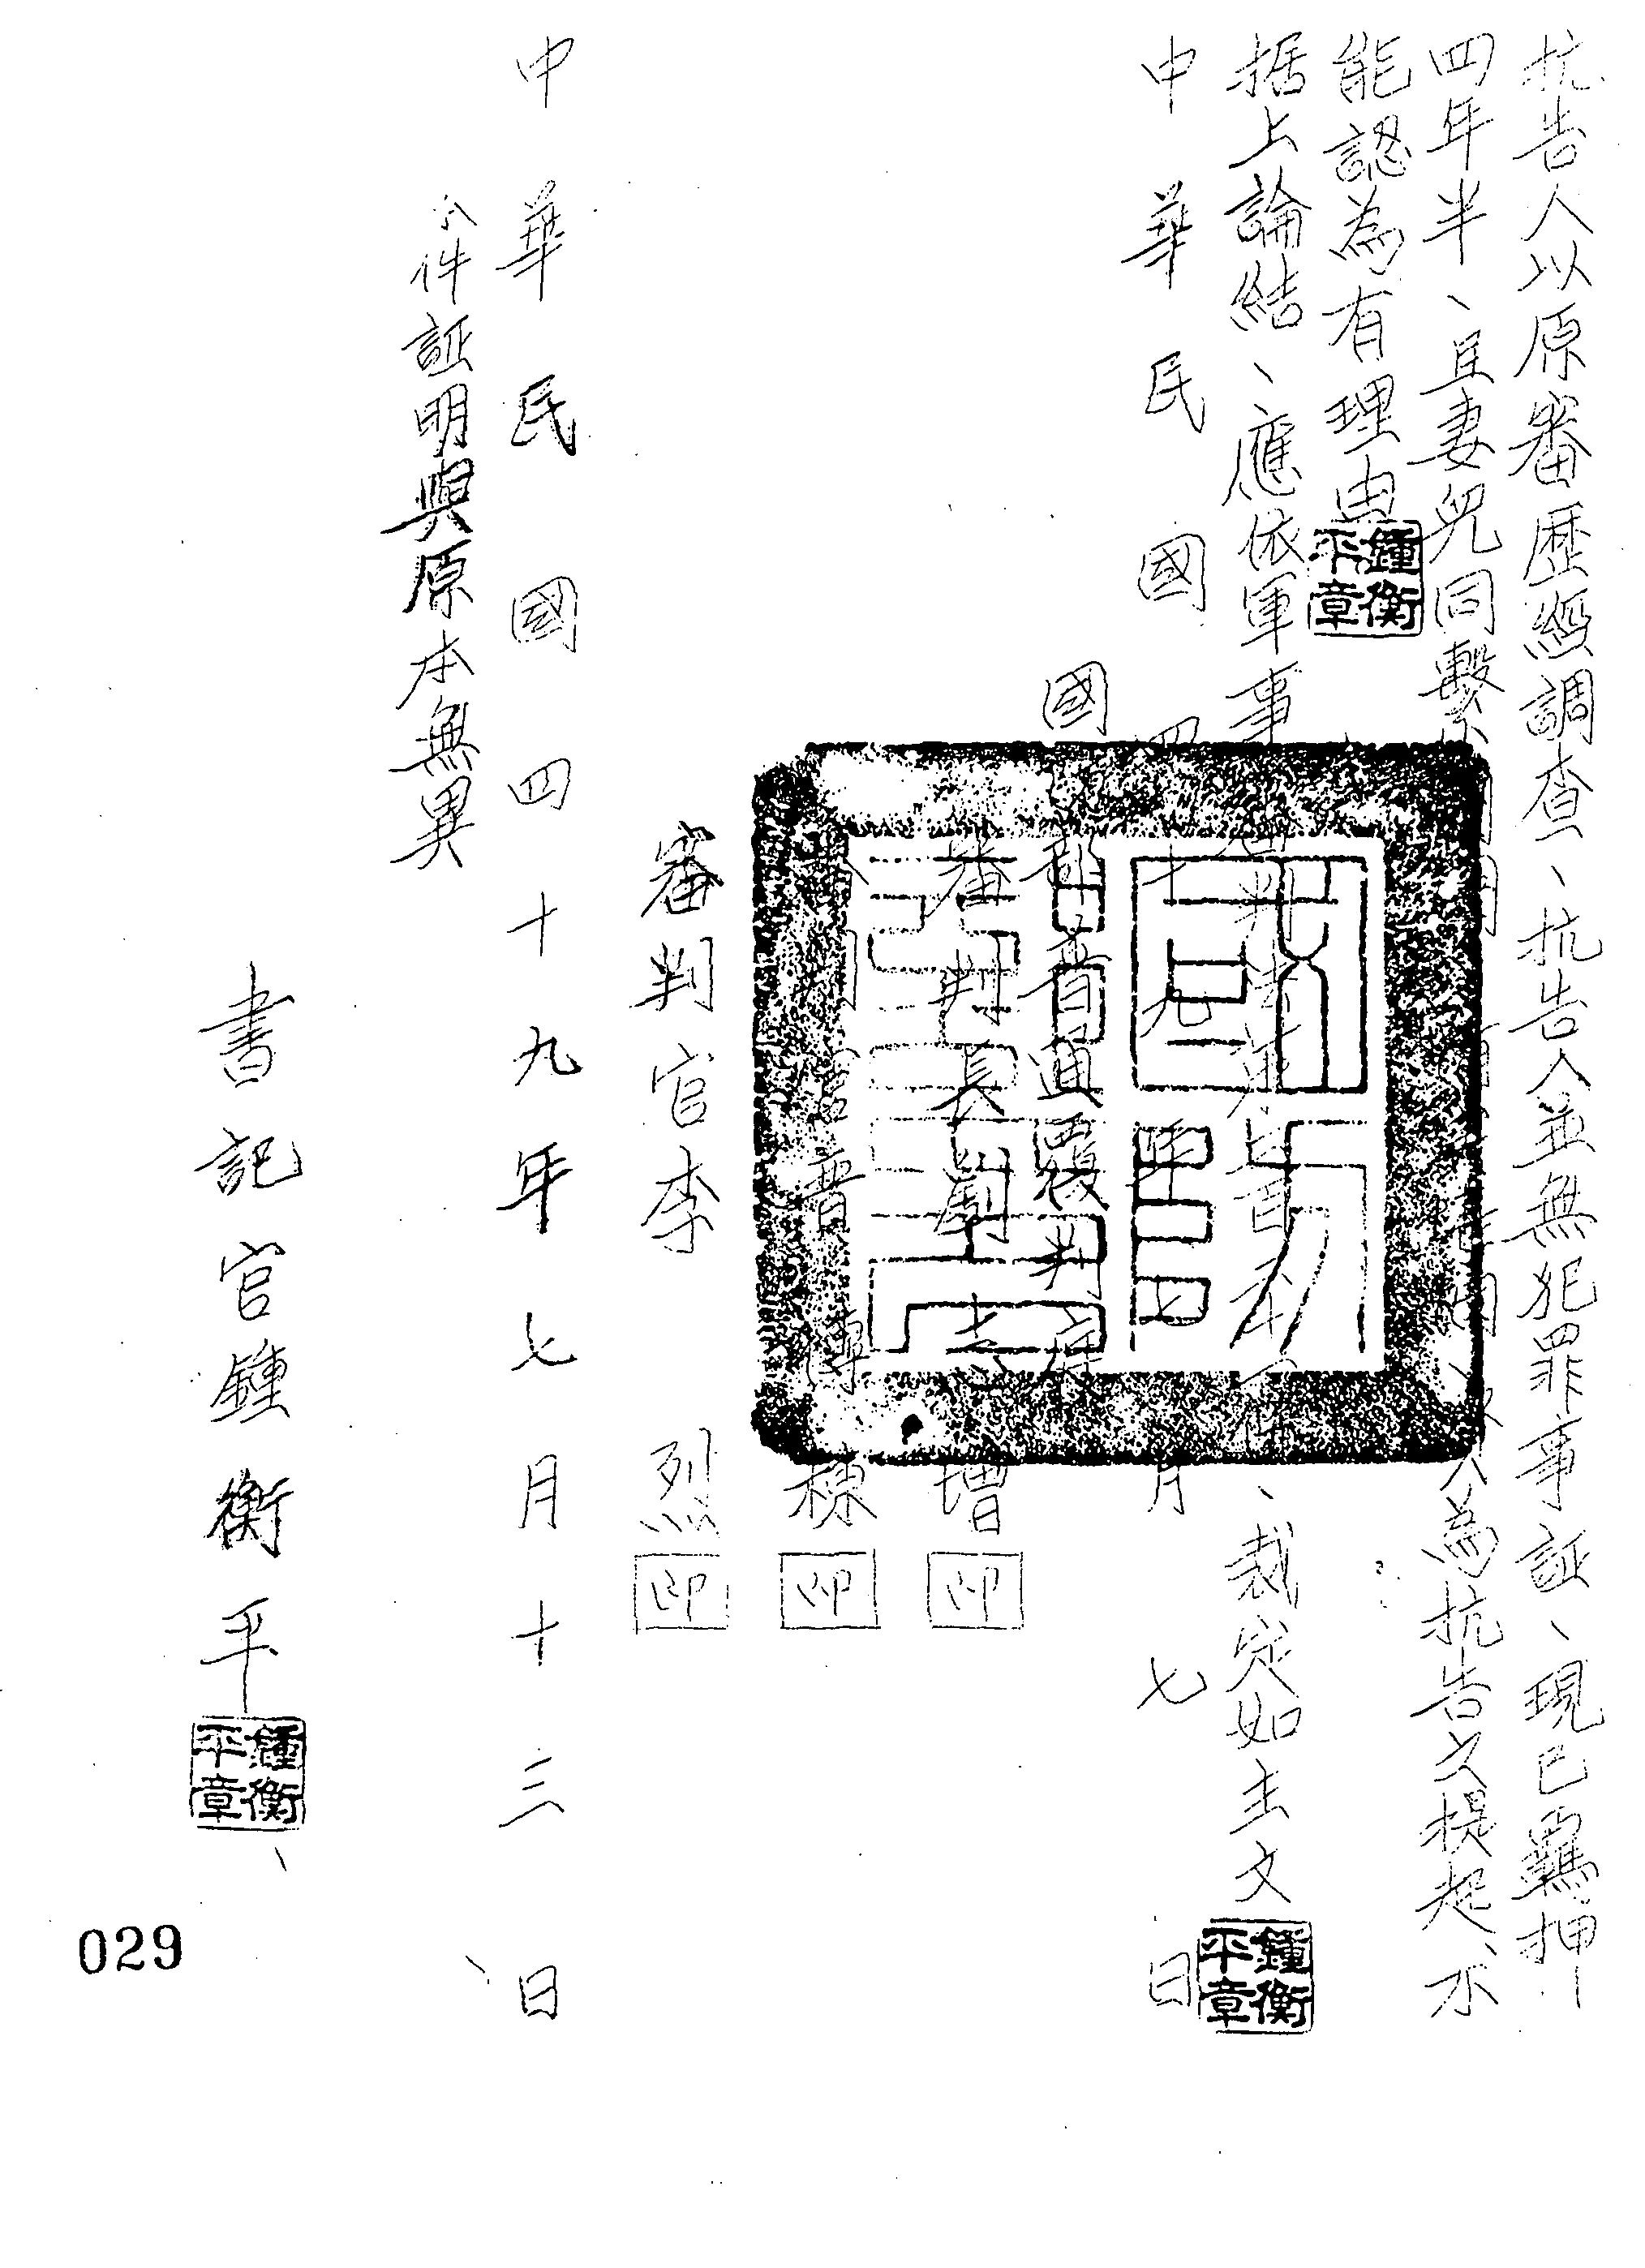 抗告人以原審歷經調查、抗告人並無犯罪事証、現已羈押
四年半、且妻兒同繫 為抗告之提起、不
能認為有理由
據上論結、應依軍事審判法第 百 十 條、裁定如主文
中華民國四十九年七月七日
國防部普通覆判庭
審判長劉志增印
審判官曹傳棟印
審判官李烈印
中華民國四十九年七月十三日
本件証明與原本無異
書記官鍾衡平
鍾衡平章
鍾衡平章
鍾衡平章
029